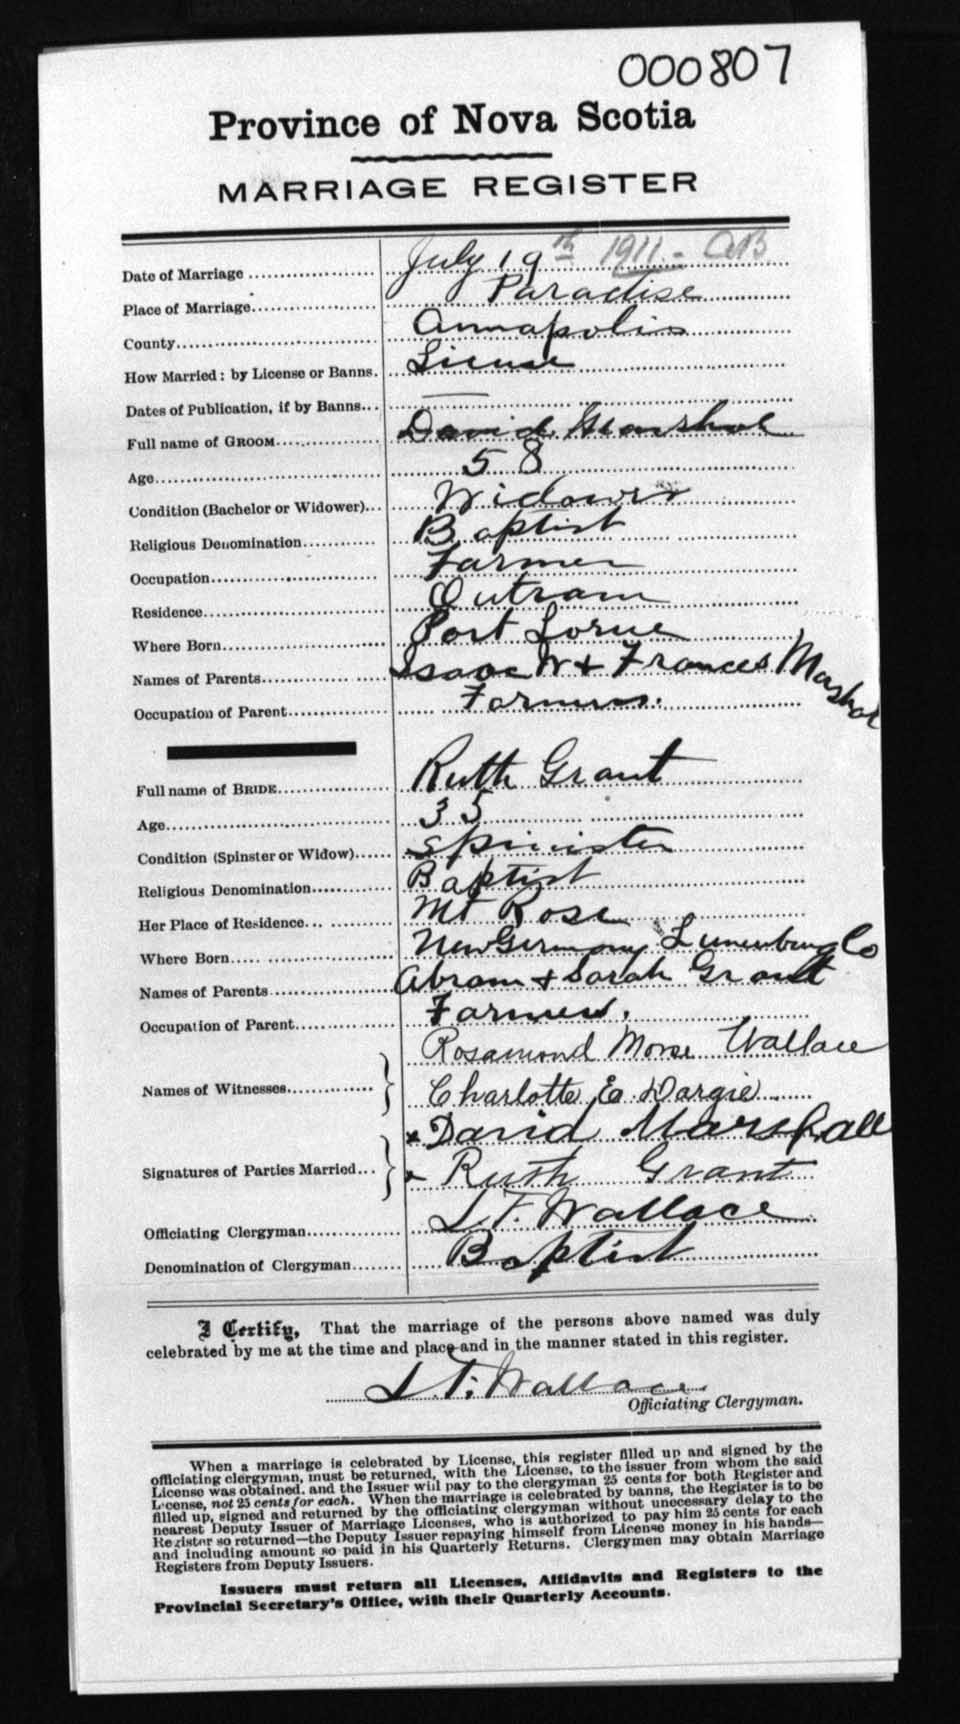 000807
Province of Nova Scotia
MARRIAGE REGISTER
Date of Marriage July 19th 1911 - 
Place of Marriage Paradise
County Annapolis
How Married: by License or Banns. License
Dates of Publication, if by Banns —
Full name of GROOM David Marshal
Age 58
Condition (Bachelor or Widower) Widower
Religious Denomination Baptist
Occupation Farmer
Residence Outram
Where Born Port Lorne
Names of Parents Isaac W + Frances Marshal
Occupation of Parent Farmers.
Full name of BRIDE Ruth Grant
Age 35
Condition (Spinster or Widow) Spinister
Religious Denomination Baptist
Her Place of Residence Mt Rose
Where Born New Germany Lunenburg Co
Names of Parents Abram + Sarah Grant
Occupation of Parent Farmers.
Names of Witnesses Rosamond Morse Wallace
Charlotte E. Dargie
Signatures of Parties Married x David Marshall
x Ruth Grant
Officiating Clergyman I. T. Wallace
Denomination of Clergyman Baptist
I Certify, That the marriage of the persons above named was duly
celebrated by me at the time and place and in the manner stated in this register.
I. T. Wallace
Officiating Clergyman.
When a marriage is celebrated by License, this register filled up and signed by the
officiating clergyman, must be returned, with the License, to the issuer from whom the said
License was obtained, and the Issuer will pay to the clergyman 25 cents for both Register and
License, not 25 cents for each. When the marriage is celebrated by banns, the Register is to be
filled up, signed and returned by the officiating clergyman without unnecessary delay to the
nearest Deputy Issuer of Marriage Licenses, who is authorized to pay him 25 cents for each
Register so returned—the Deputy Issuer repaying himself from License money in his hands—
and including amount so paid in his Quarterly Returns. Clergymen may obtain Marriage
Registers from Deputy Issuers.
Issuers must return all Licenses, Affidavits and Registers to the
Provincial Secretary's Office, with their Quarterly Accounts.